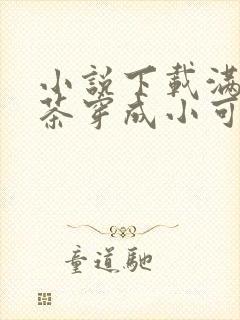 小説下載滿
茶穿成小可
童道馳